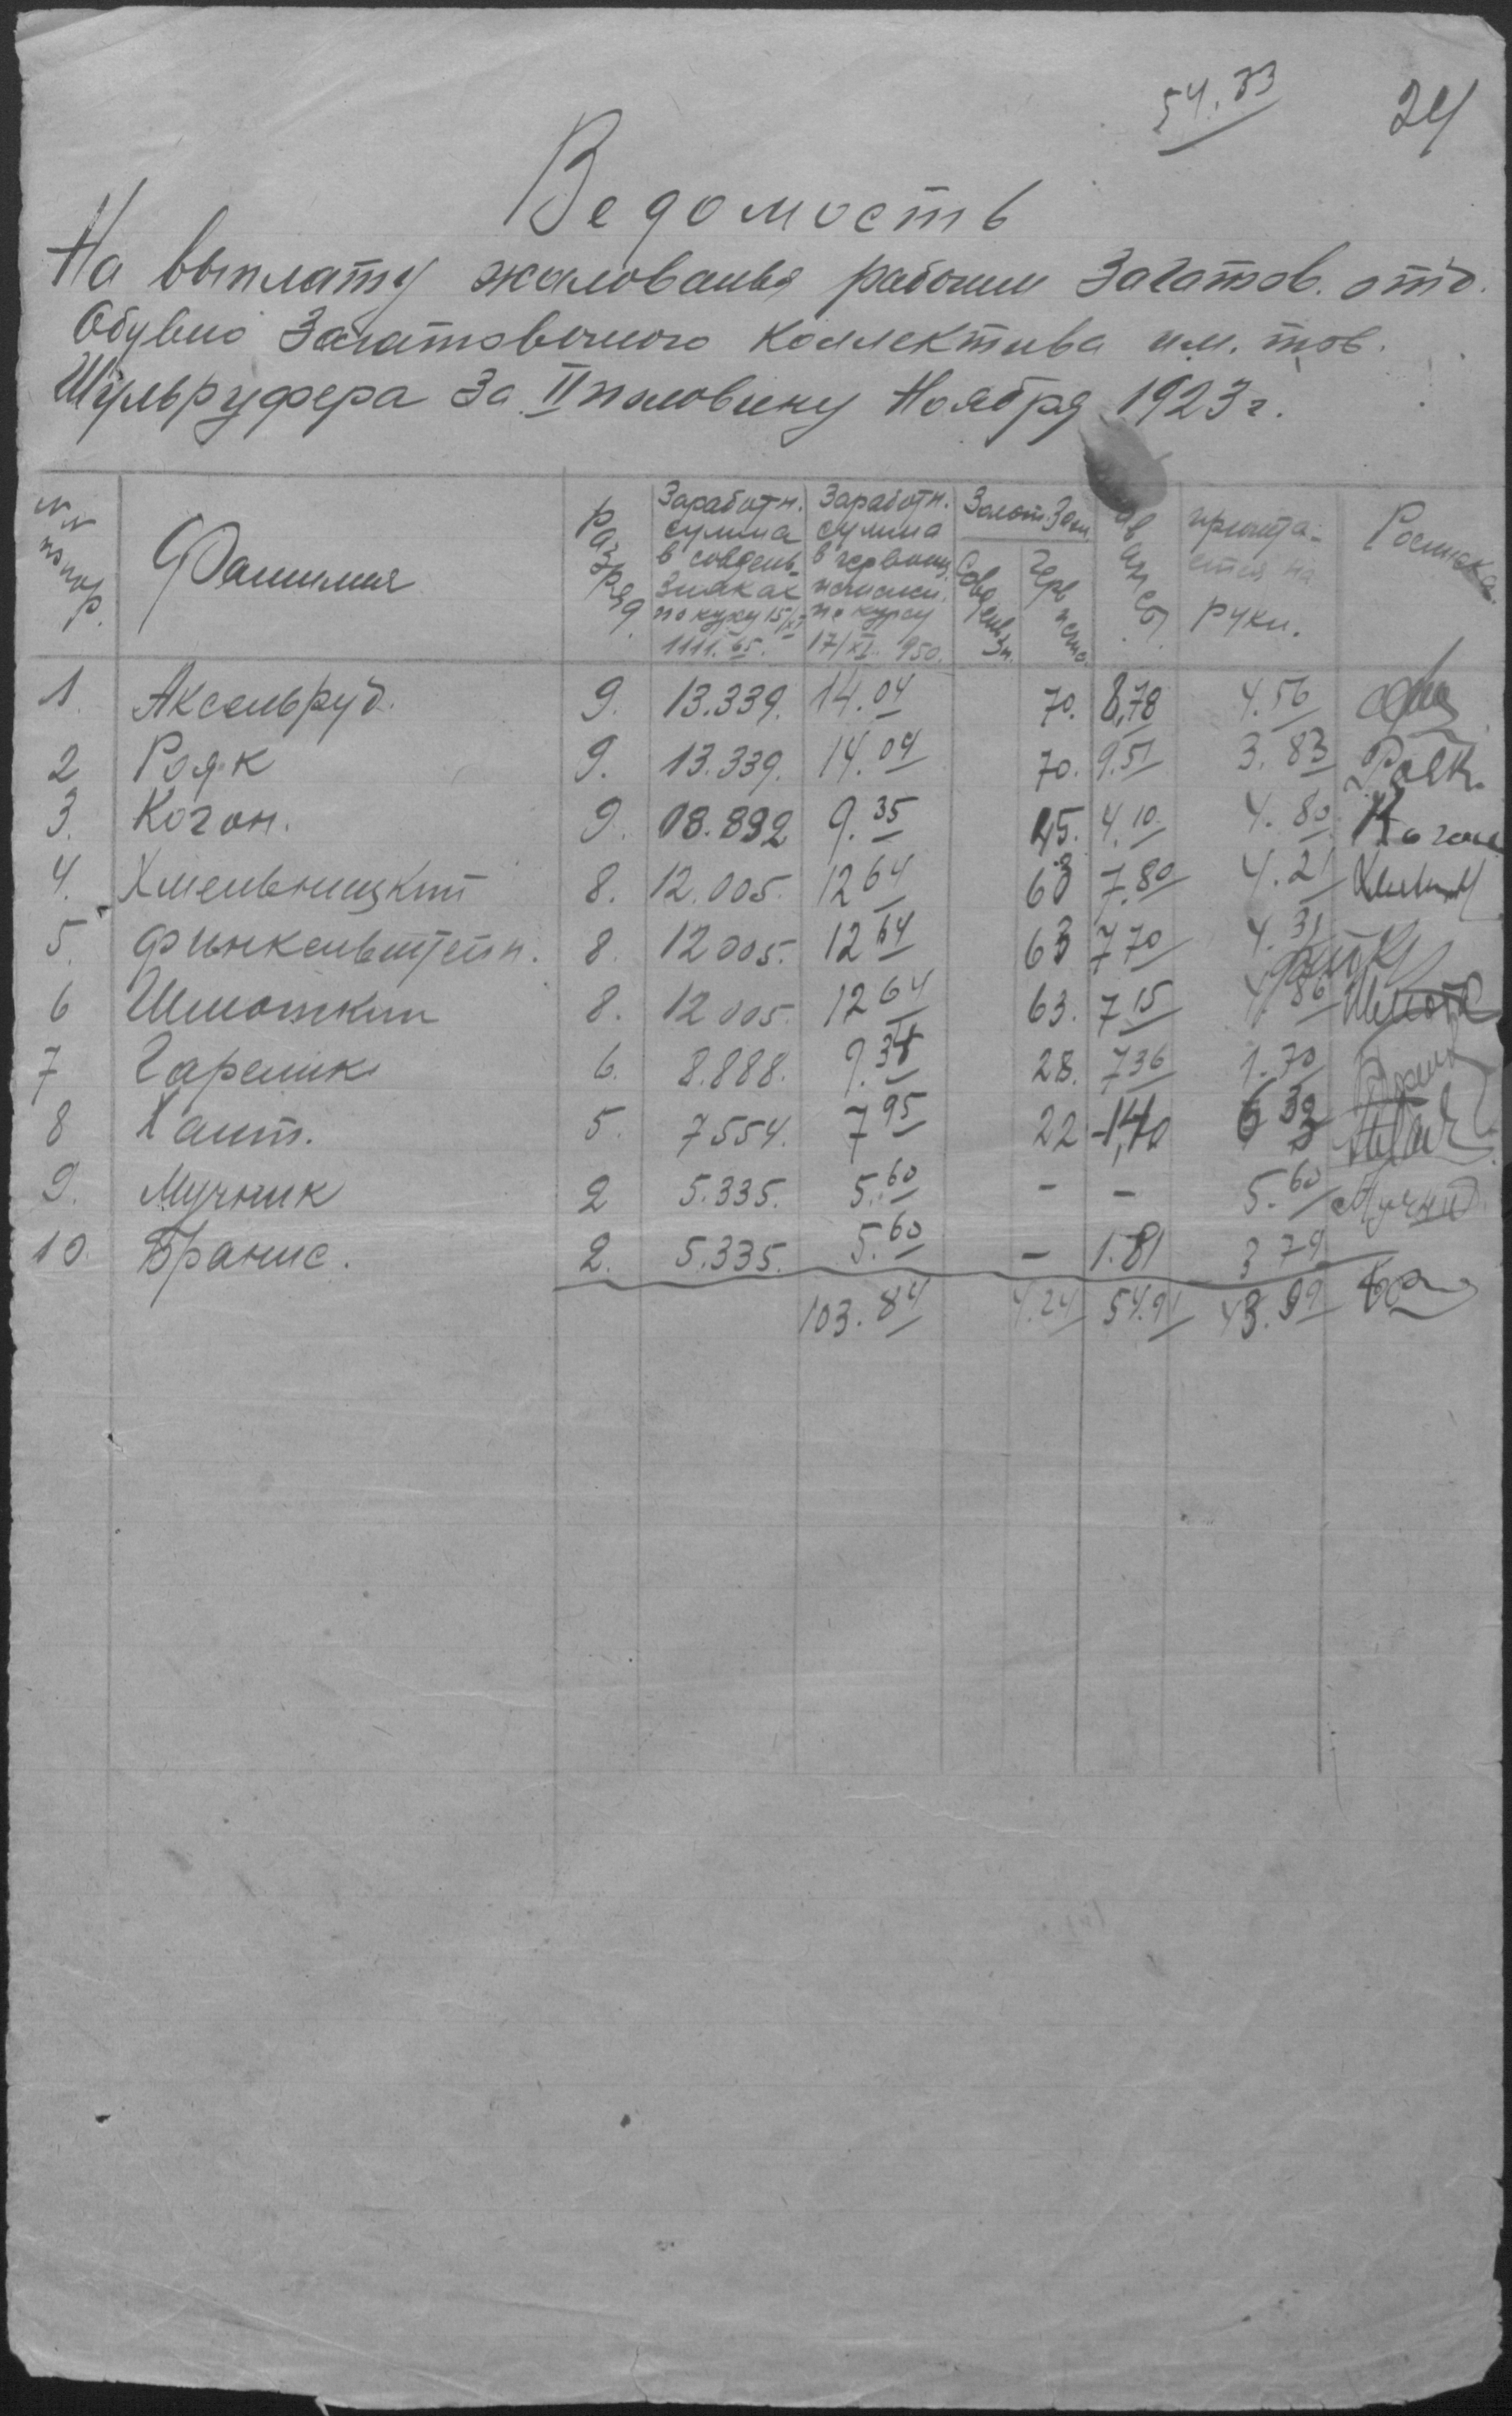 54.33
24
Ведомость
На выплату жалованья рабочим Загатов. отд.
Обувно Загатовочного Коллектива им. тов.
Шульруфера За II половину Ноября 1923 г.
№№ по пор. Фамилия Разряд Заработн. сумма в совдень. знаках по курсу 15/XI 1111.65. Заработн. сумма в червонц. исчислен. по курсу 17/XI. 950. Золот. Зай. Совденьзн. Черв исчис. Аванс. причита-ется на руки. Росписка
1. Аксельруд. 9. 13.339. 14.04 70. 8,78 4.56
2 Рояк 9. 13.339. 14.04 70. 9.51 3.83 Рояк.
3. Коган. 9. 08.892 9.35 45. 4.10 4.80 Коган
4. Хмельницкий 8. 12.005. 12 64 63 7.80 4.21
5. Финкельштейн. 8. 12005. 12 64 63 7 70 4.31
6 Шмоткин 8. 12005. 12 64 63. 7 15 4.86 Шмотк
7 Гарелик 6. 8.888. 9.34 28. 7 36 1.70
8 Хаит. 5. 7554. 7 95 22 1,40 6 33
9. Мучник 2 5.335. 5.60 - - 5.60 Мучник
10. Бранис. 2. 5.335. 5.60 - 1.81 3 79
103.84 4.24 54.91 43.99